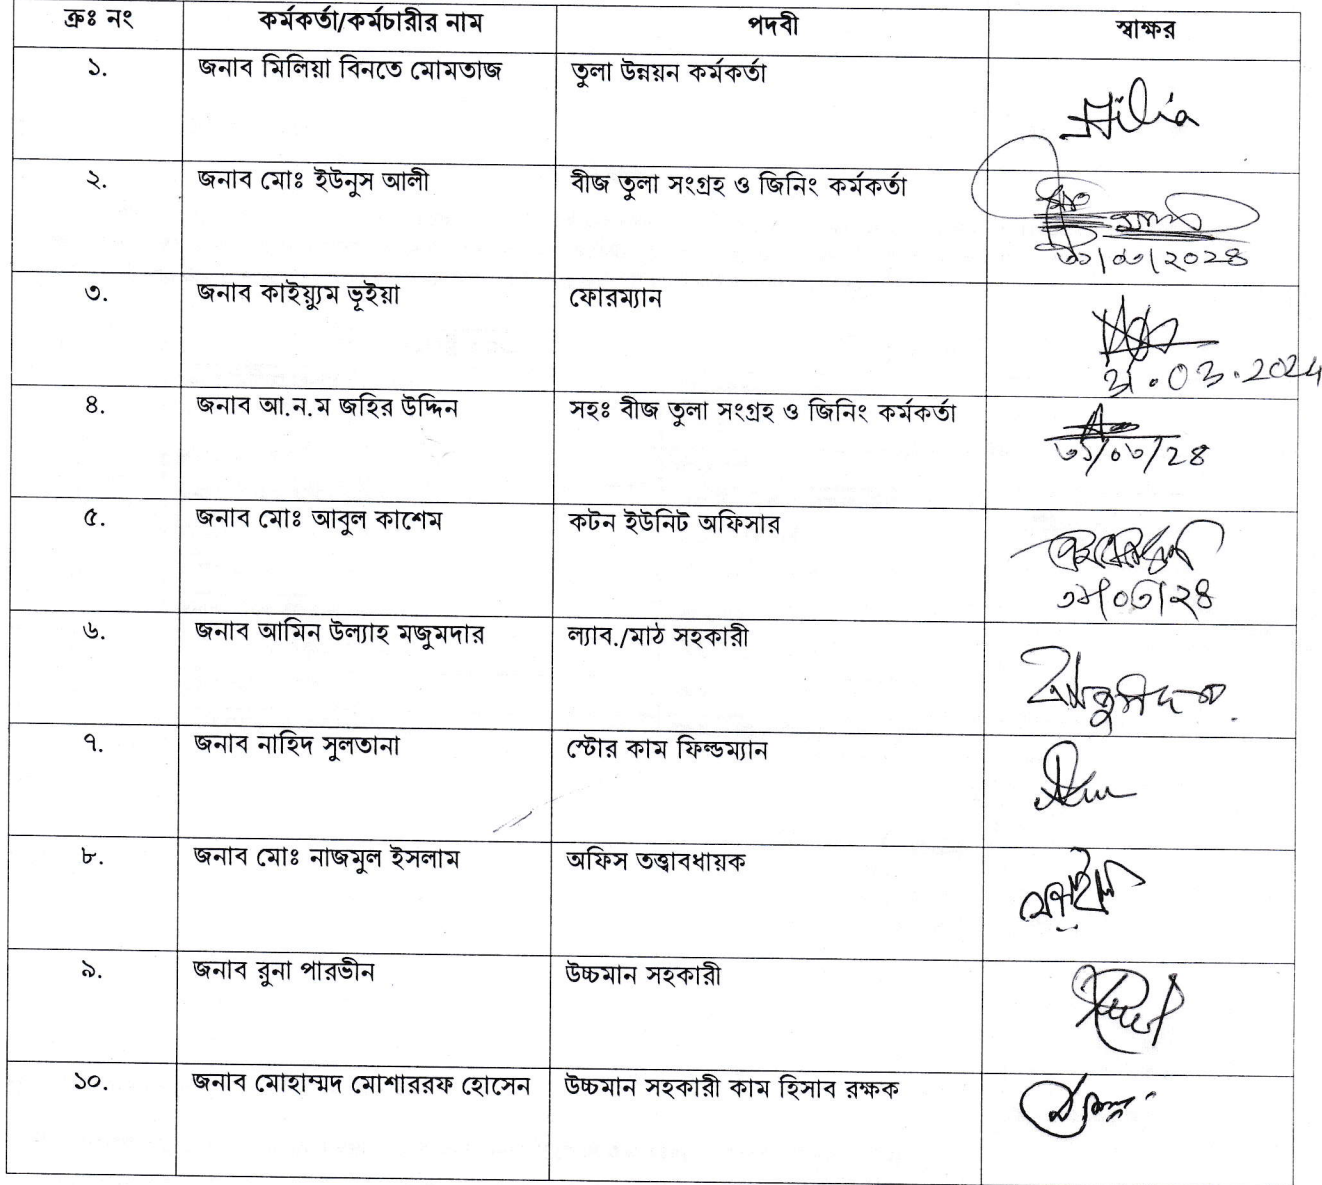 ক্রঃ নং কর্মকর্তা/কর্মচারীর নাম পদবী স্বাক্ষর
১. জনাব মিলিয়া বিনতে মোমতাজ তুলা উন্নয়ন কর্মকর্তা Milia
২. জনাব মোঃ ইউনুস আলী বীজ তুলা সংগ্রহ ও জিনিং কর্মকর্তা
৩১/০৩/২০২৪
৩. জনাব কাইয়্যুম ভূইয়া ফোরম্যান
31.03.2024
৪. জনাব আ.ন.ম জহির উদ্দিন সহঃ বীজ তুলা সংগ্রহ ও জিনিং কর্মকর্তা
৩১/০৩/২৪
৫. জনাব মোঃ আবুল কাশেম কটন ইউনিট অফিসার
৩১/০৩/২৪
৬. জনাব আমিন উল্যাহ মজুমদার ল্যাব./মাঠ সহকারী
৭. জনাব নাহিদ সুলতানা স্টোর কাম ফিল্ডম্যান
৮. জনাব মোঃ নাজমুল ইসলাম অফিস তত্ত্বাবধায়ক
৯. জনাব রুনা পারভীন উচ্চমান সহকারী
১০. জনাব মোহাম্মদ মোশাররফ হোসেন উচ্চমান সহকারী কাম হিসাব রক্ষক